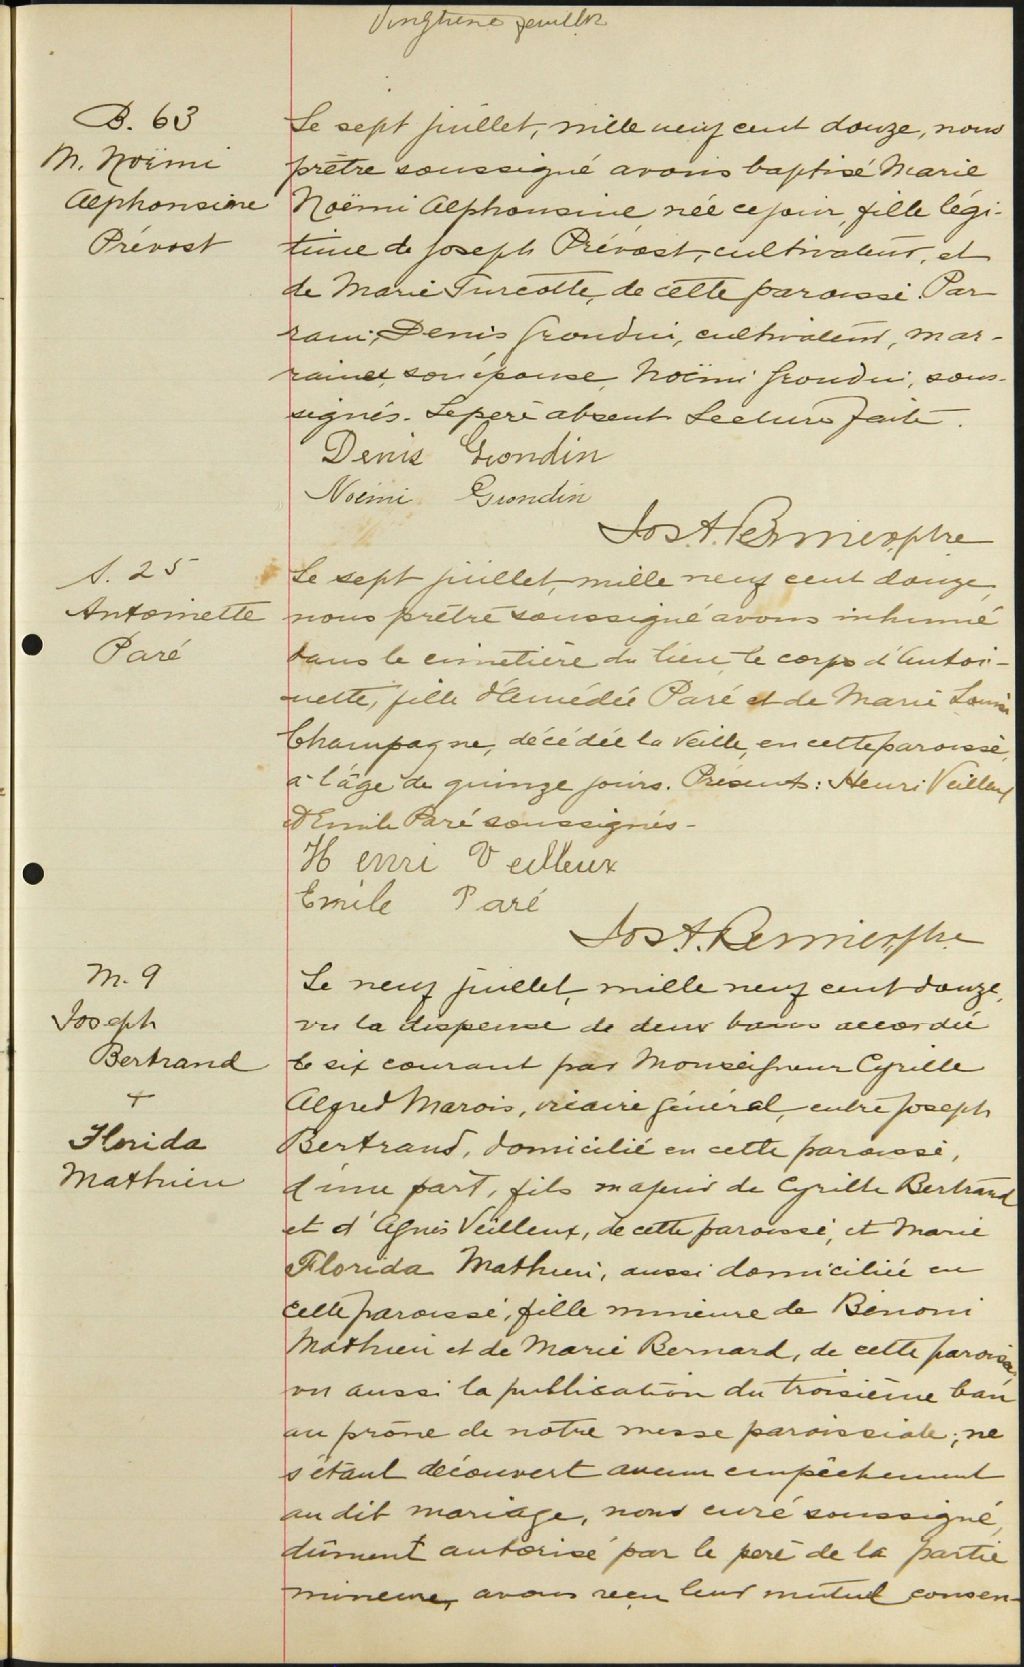 Vingtième feuillet
B. 63
M. Noëmi
Alphonsine
Prévost
Le sept juillet, mille neuf cent douze, nous
prêtre soussigné avons baptisé Marie
Noëmi Alphonsine née ce jour, fille légi-
time de Joseph Prévost, cultivateur, et
de Marie Turcotte, de cette paroisse. Par-
rain, Denis Grondin, cultivateur, mar-
raine, son épouse, Noëmi Grondin, sous-
signés. Le père absent. Lecture faite.
Denis Grondin
Noëmi Grondin
Jos. A. Bernier, ptre
S. 25
Antoinette
Paré
Le sept juillet, mille neuf cent douze,
nous prêtre soussigné avons inhumé
dans le cimetière du lieu, le corps d'Antoi-
nette, fille d'Amédée Paré et de Marie Louise
Champagne, décédée la veille, en cette paroisse,
à l'âge de quinze jours. Présents : Henri Veilleux
& Emile Paré soussignés -
Henri Veilleux
Emile Paré
Jos. A. Bernier, ptre
M. 9
Joseph
Bertrand
+
Florida
Mathieu
Le neuf juillet, mille neuf cent douze,
vu la dispense de deux bans accordée
le six courant par Monseigneur Cyrille
Alfred Marois, vicaire général, entre Joseph
Bertrand, domicilié en cette paroisse,
d'une part, fils majeur de Cyrille Bertrand
et d'Agnès Veilleux, de cette paroisse, et Marie
Florida Mathieu, aussi domiciliée en
cette paroisse, fille mineure de Bénoni
Mathieu et de Marie Bernard, de cette paroisse,
vu aussi la publication du troisième ban
au prône de notre messe paroissiale ; ne
s'étant découvert aucun empêchement
au dit mariage, nous curé soussigné,
dûment autorisé par le père de la partie
mineure, avons reçu leur mutuel consen-